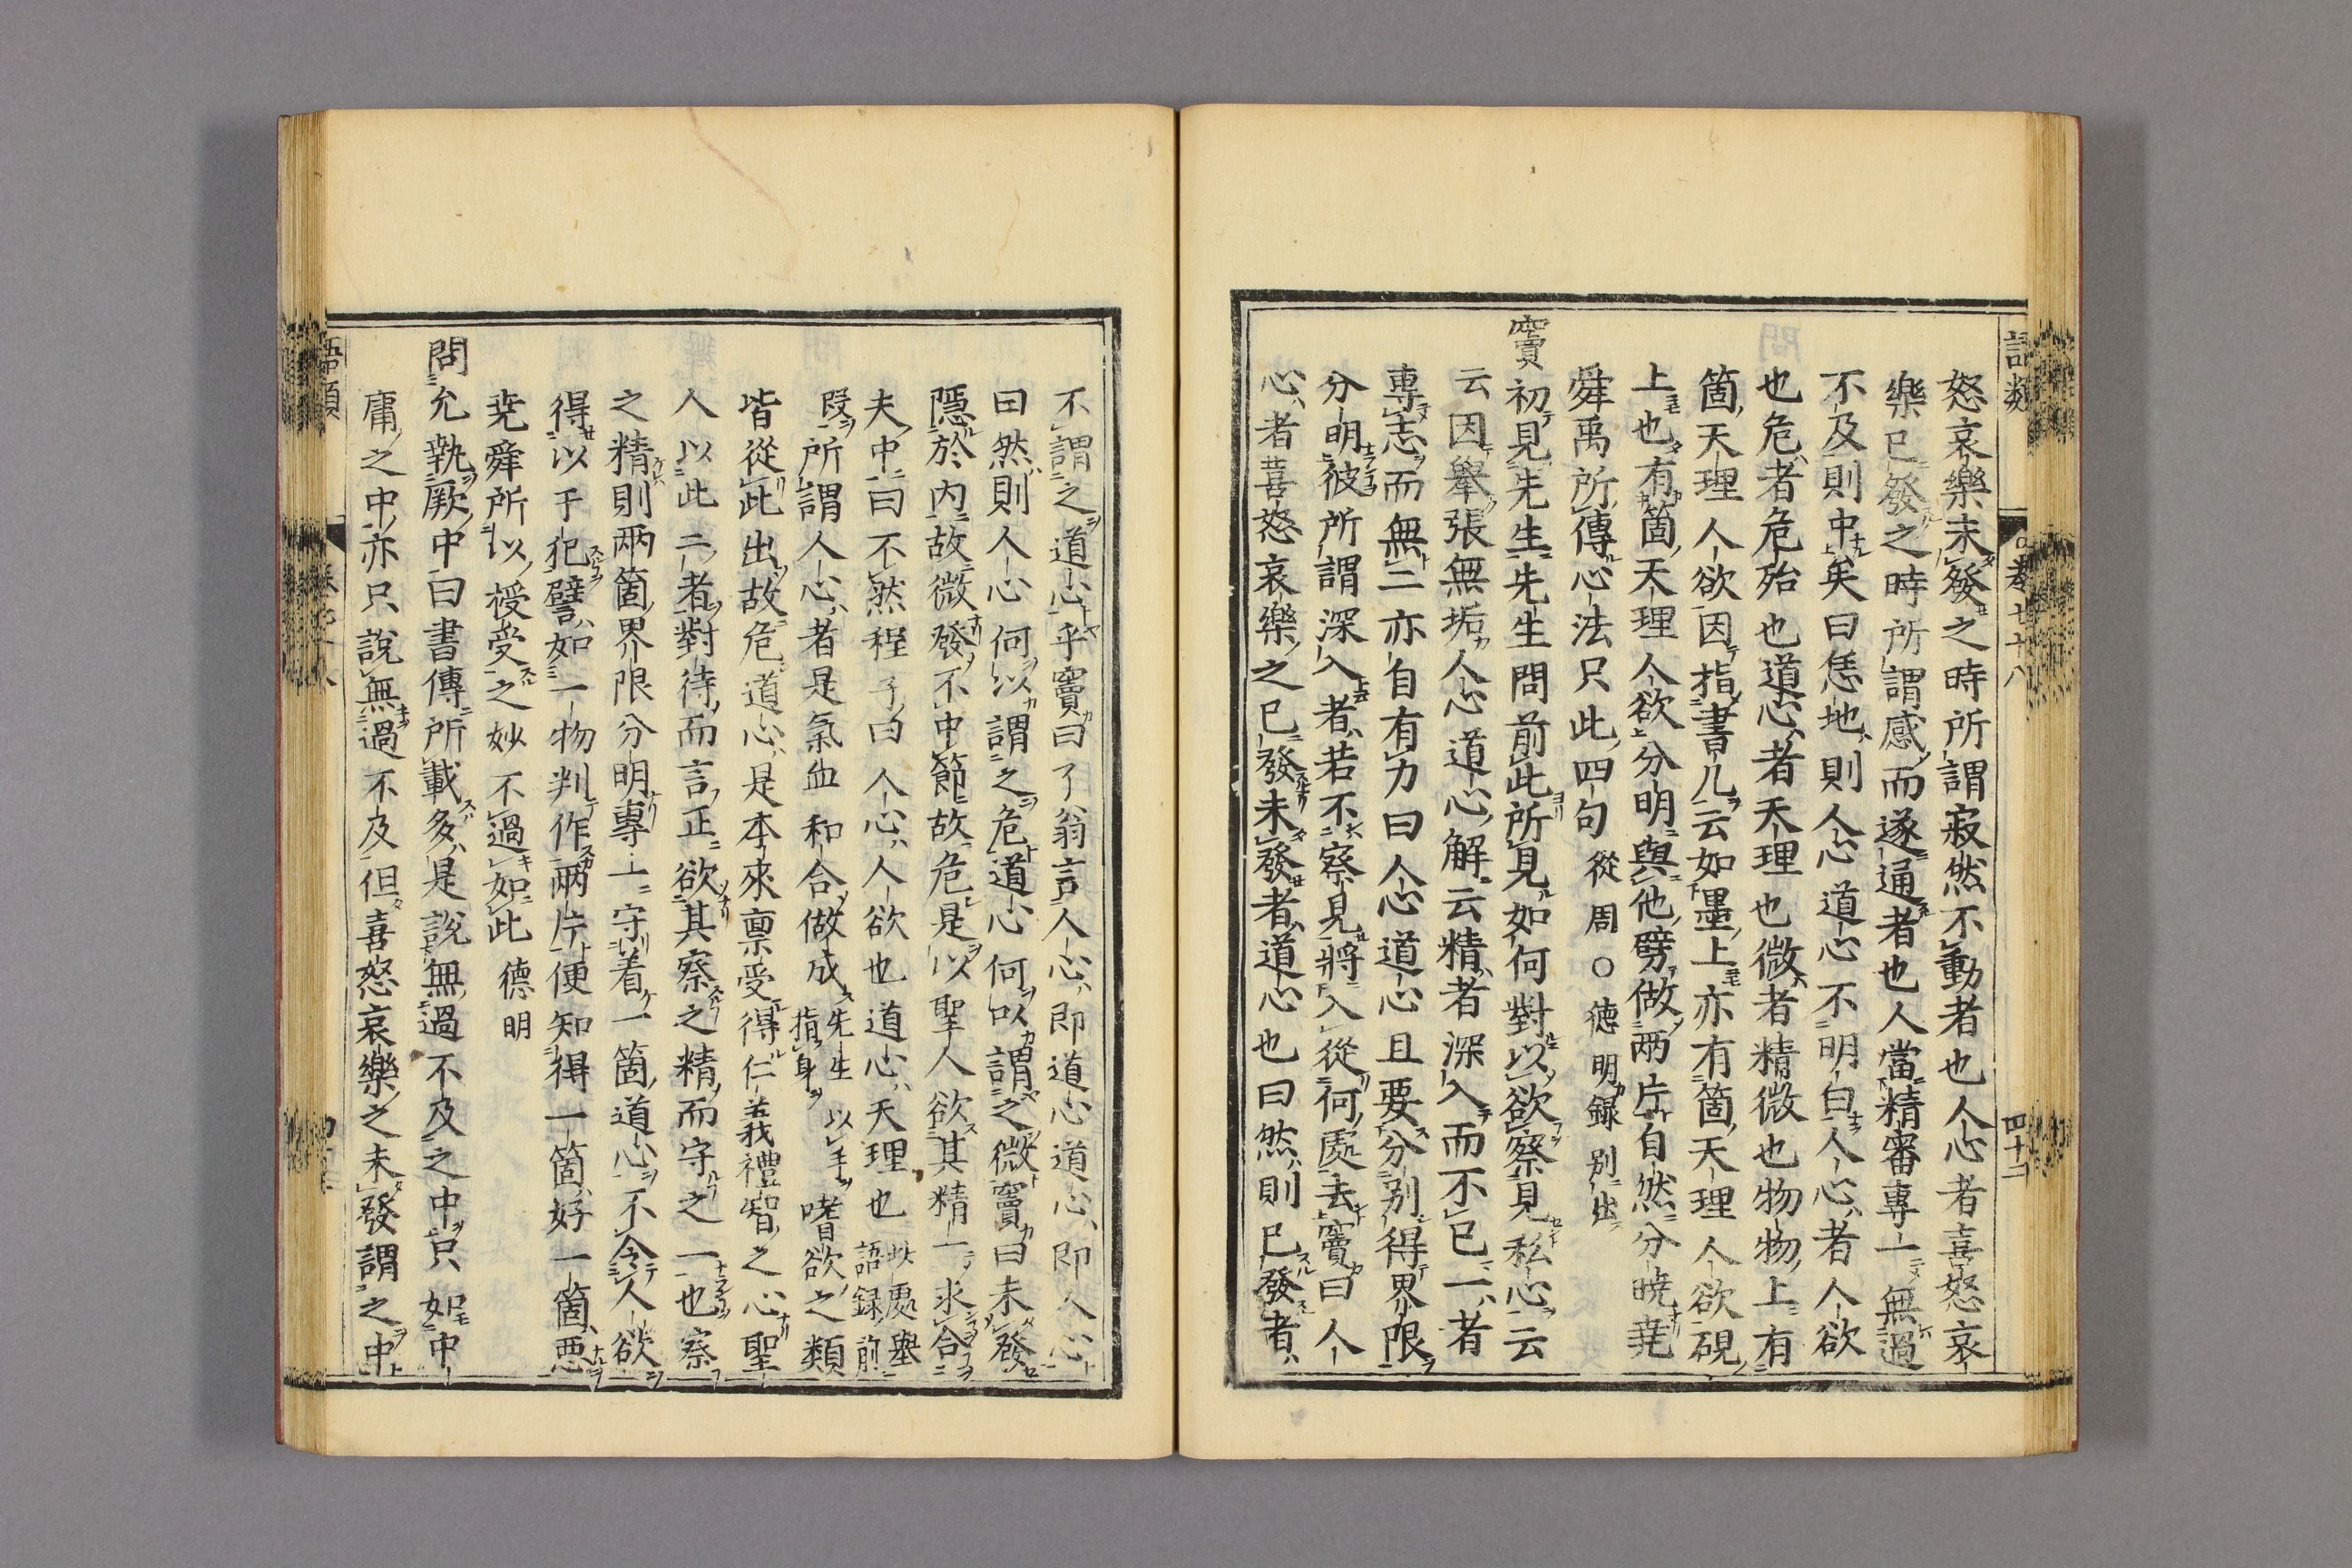 語類 卷七十八 四十二
怒哀樂未發之時所謂寂然不動者也人心者喜怒哀
樂已發之時所謂感而遂通者也人當精審專一無過
不及則中矣曰恁地則人心道心不明白人心者人欲
也危者危殆也道心者天理也微者精微也物物上有
箇天理人欲因指書几云如墨上亦有箇天理人欲硯
上也有箇天理人欲分明與他劈做兩片自然分曉堯
舜禹所傳心法只此四句 從周○德明録別出
竇初見先生先生問前此所見如何對以欲察見私心云
云因舉張無垢人心道心解云精者深入而不已一者
專志而無二亦自有力曰人心道心且要分別得界限
分明彼所謂深入者若不察見將入從何處去竇曰人
心者喜怒哀樂之已發未發者道心也曰然則已發者
不謂之道心乎竇曰了翁言人心即道心道心即人心
曰然則人心何以謂之危道心何以謂之微竇曰未發
隱於内故微發不中節故危是以聖人欲其精一求合
夫中曰不然程子曰人心人欲也道心天理也 此處舉語録前
段 所謂人心者是氣血和合做成 先生以手指身 嗜欲之類
皆從此出故危道心是本來禀受得仁義禮智之心聖
人以此二者對待而言正欲其察之精而守之一也察
之精則兩箇界限分明專一守着一箇道心不令人欲
得以干犯譬如一物判作兩片便知得一箇好一箇惡
堯舜所以授受之妙不過如此 德明
問允執厥中曰書傳所載多是說無過不及之中只如中
庸之中亦只說無過不及但喜怒哀樂之未發謂之中
語類